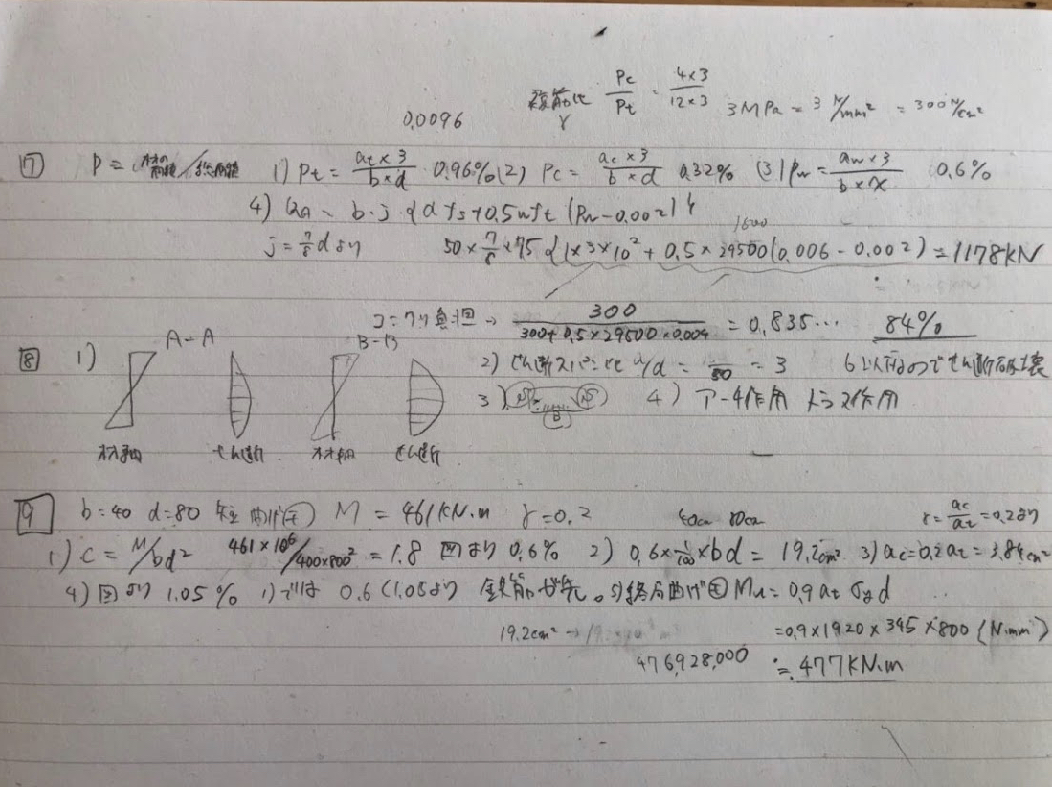 複筋比 Pc/Pt = 4×3/12×3 3MPa = 3 N/mm² = 300 N/cm²
0.0096 γ
⑰ P = 1) Pt = at×3/b×d 0.96% (2) Pc = ac×3/b×d 0.32% (3) Pw = aw×3/b×x 0.6%
4) QA = b・j {α fs + 0.5 wft (Pw - 0.002)}
1600
j = 7/8 d より 50 × 7/8 × 75 {1×3×10² + 0.5 × 29500 (0.006 - 0.002) ≒ 1178kN
コンクリ負担 → 300/300+0.5×29500×0.004 = 0.835… 84%
⑱ 1) A-A B-B
2) せん断スパン比 a/d = /50 = 3 6以下なのでせん断破壊
3) B 4) アーチ作用 トラス作用
材軸 せん断 材軸 せん断
⑲ b=40 d=80 短 曲げ M = 461kN.m γ=0.2 40cm 80cm γ = ac/at = 0.2より
1) C = M/bd² 461×10⁶/400×800² = 1.8 図より 0.6% 2) 0.6 × 1/100 × bd = 19.2cm² 3) ac = 0.2at = 3.84cm²
4) 図より 1.05% 1)では 0.6<1.05より 鉄筋が先。 5) 終局曲げ Mu = 0.9 at σy d
19.2cm² → = 0.9×1920×345×800 (N.mm)
476,928,000 ≒ 477kN.m